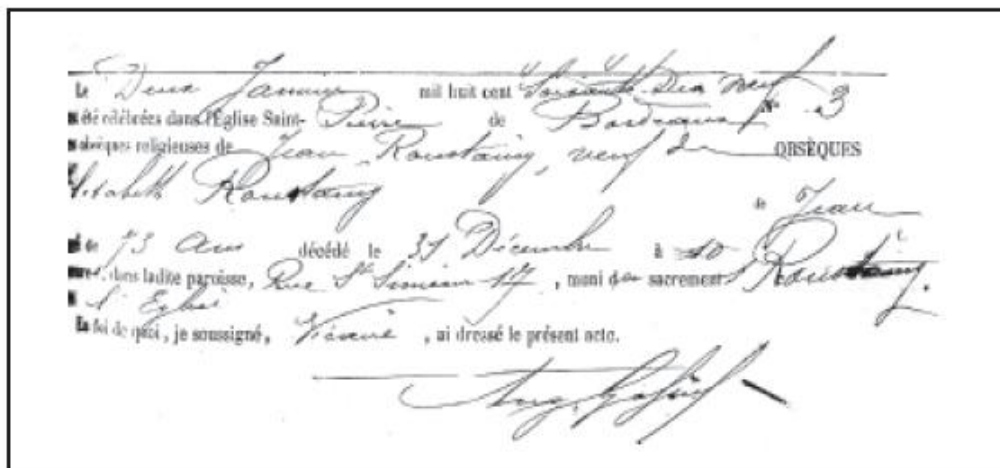 Le Deux Janvier mil huit cent Soixante Dix neuf
été célébrées dans l'Église Saint- Pierre de Bordeaux N° 3
obsèques religieuses de Jean Roustaing, veuf de OBSÈQUES
Elisabeth Roustaing
de Jean
de 73 Ans décédé le 31 Décembre à 10 Roustaing.
dans ladite paroisse, Rue St Siméon 17, muni des sacrements
l'Eglise
En foi de quoi, je soussigné, Vicaire, ai dressé le présent acte.